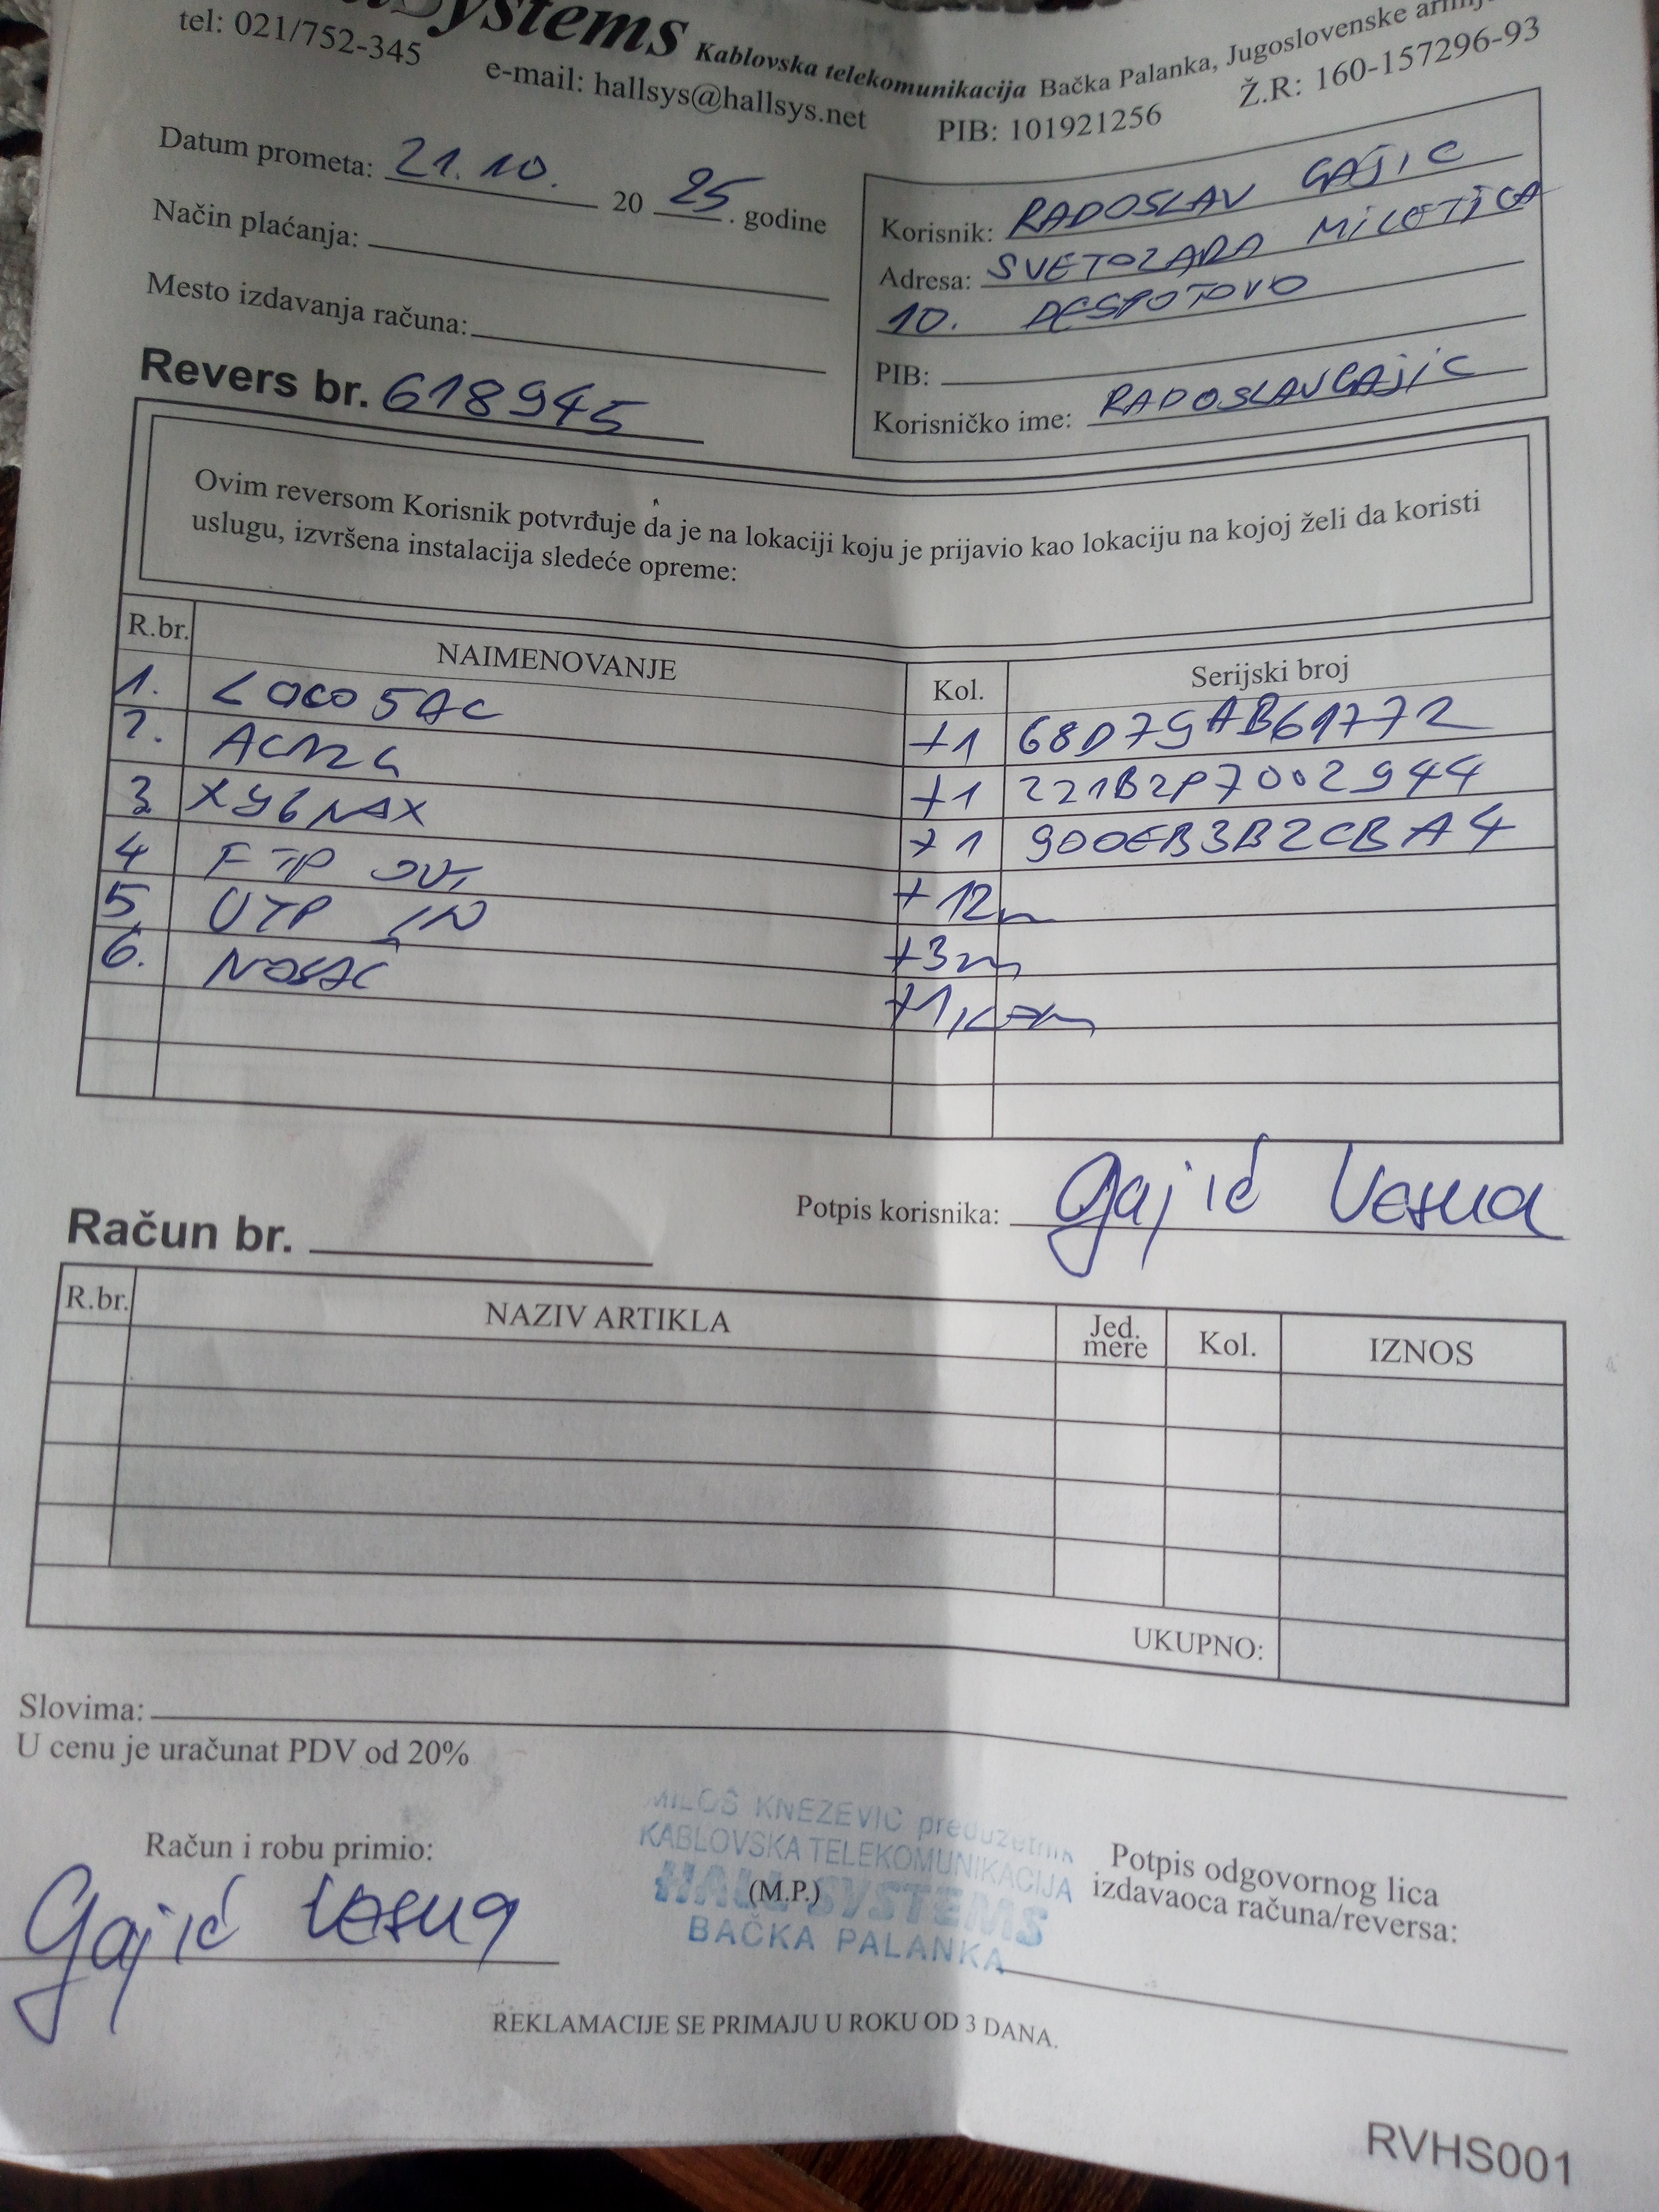 Systems Kablovska telekomunikacija Bačka Palanka, Jugoslovenske
tel: 021/752-345 e-mail: hallsys@hallsys.net PIB: 101921256 Ž.R: 160-157296-93
Datum prometa: 21.10. 2025. godine
Način plaćanja:
Mesto izdavanja računa:
Korisnik: RADOSLAV GAJIC
Adresa: SVETOZARA MILETIĆA
10. DESPOTOVO
PIB:
Korisničko ime: RADOSLAVGAJIC
Revers br. 618945
Ovim reversom Korisnik potvrđuje da je na lokaciji koju je prijavio kao lokaciju na kojoj želi da koristi
uslugu, izvršena instalacija sledeće opreme:
R.br. NAIMENOVANJE Kol. Serijski broj
1. LOCO 5AC +1 68D79AB61772
2. AC12G +1 221B2P7002944
3. +1 900EB3B2CBA4
4 FTP OUT +12m
5 UTP IN +3m
6. NOSAČ +1 kom
Potpis korisnika: Gajić Vesna
Račun br.
R.br. NAZIV ARTIKLA Jed. mere Kol. IZNOS
UKUPNO:
Slovima:
U cenu je uračunat PDV od 20%
Račun i robu primio:
Gajić Vesna
MILOŠ KNEŽEVIĆ preduzetnik
KABLOVSKA TELEKOMUNIKACIJA
HALL SYSTEMS
(M.P.)
BAČKA PALANKA
Potpis odgovornog lica
izdavaoca računa/reversa:
REKLAMACIJE SE PRIMAJU U ROKU OD 3 DANA.
RVHS001